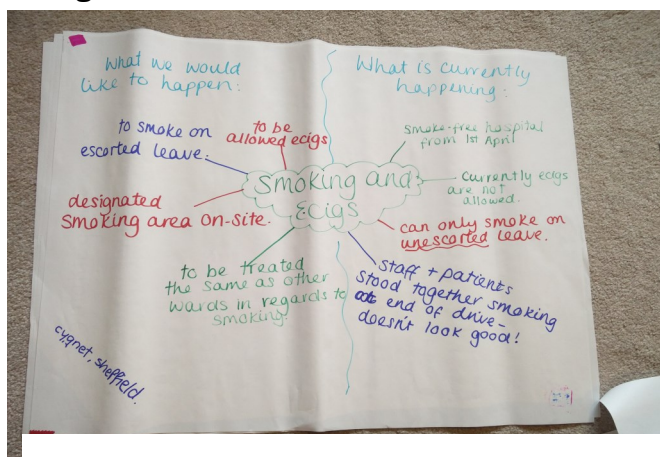 What we would
like to happen:
to smoke on
escorted leave.
to be
allowed ecigs
designated
Smoking area on-site.
to be treated
the same as other
wards in regards to
smoking.
cygnet, sheffield.
Smoking and
Ecigs
What is currently
happening:
smoke-free hospital
from 1st April
currently ecigs
are not
allowed.
can only smoke on
unescorted leave.
staff + patients
stood together smoking
at end of drive-
doesn't look good!